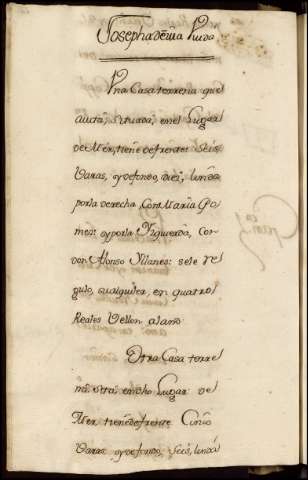 Josepha de ... Viuda
Una Casa terrena que
avita, Situada, en el Lugar
de Mér, tiene de frente: Seis
Varas, y de fondo, diez, linda
por la derecha, Con Maria Go
mes: y por la Izquierda, Con
Don Alonso Yllanes: se le re
gulo, su alquiler, en quatro
Reales Vellon al ano
Otra Casa terre
na, sita, en dho Lugar de
Mér tiene de frente Cinco
Varas, y de fondo, Seis, linda